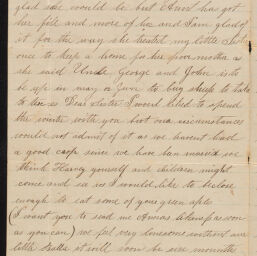 glad she would be but Annā has got
her fill and more of her and I am glad of
it for the way she treated my little
once to keep a home for her poor mother as
she said Uncle George and John is to
be up in may or June to buy sheep to take
to Dear Sister I would liked to spend
the winter with you but our circumstances
would not admit of it as we havent had
a good crop since we have ben married we
think Harvey yourself and children might
come and see us I would like to be close
enough to eat some of your green aples
(I want you to send me Annas as soon
as you can) we feel very lonesome without our
little it will soon be six months